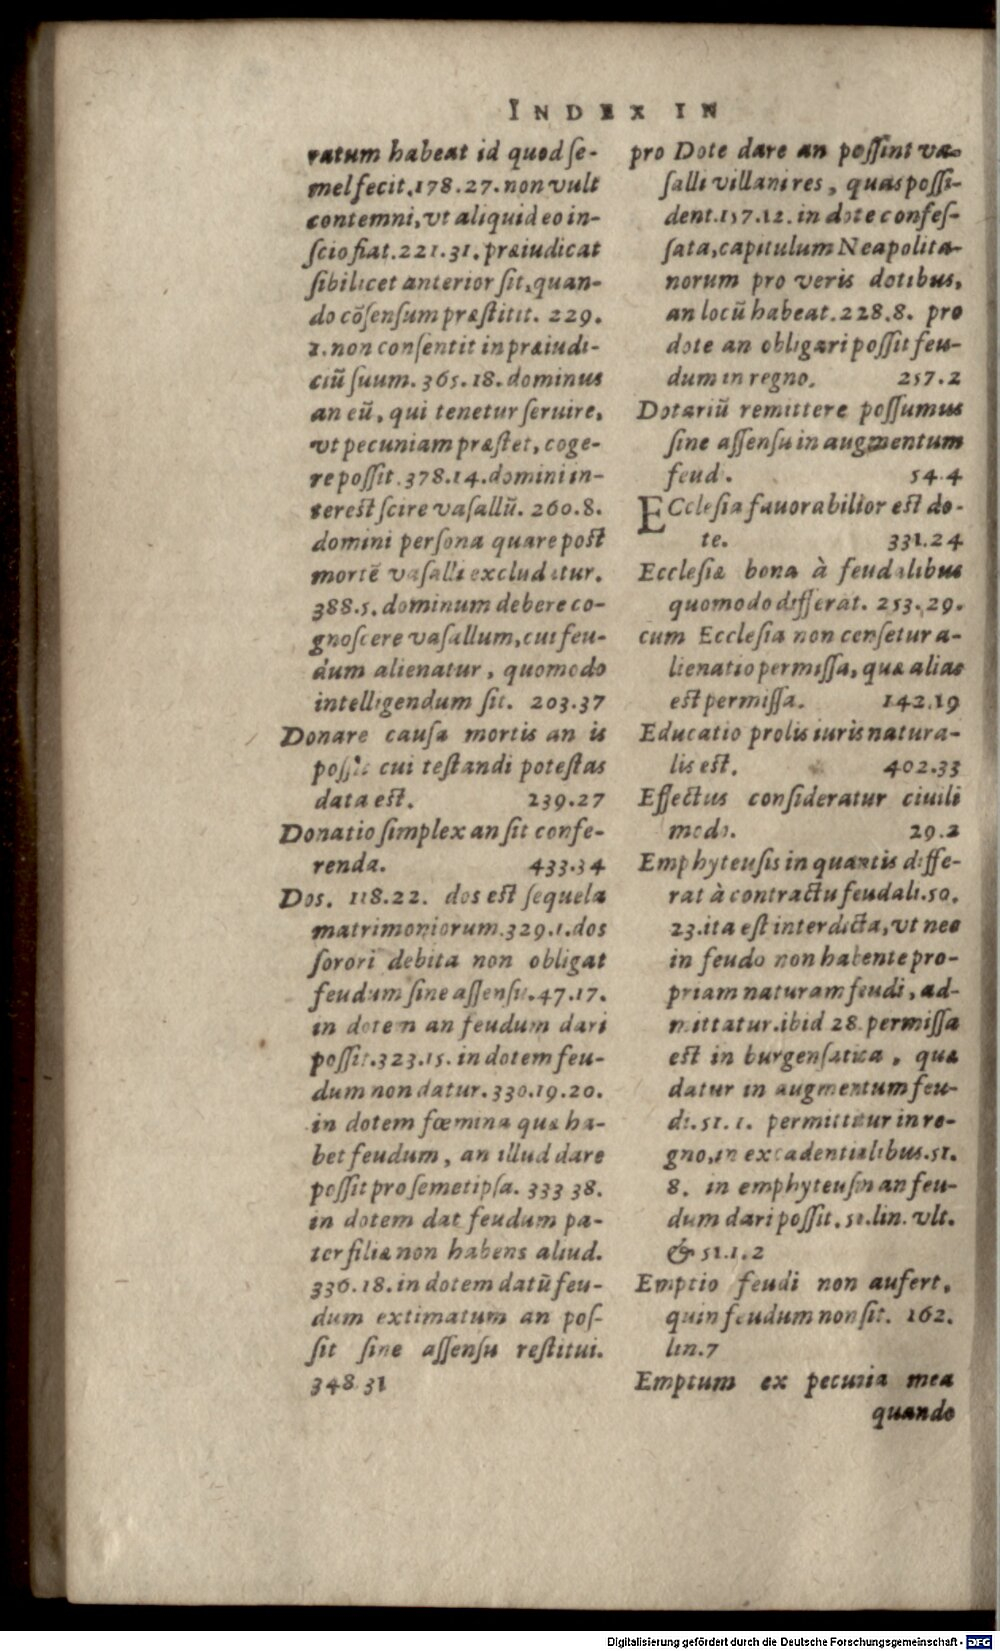 INDEX IN
ratum habeat id quod ſe-
mel fecit. 178.27. non vult
contemni, vt aliquid eo in-
ſcio fiat. 221.31. præiudicat
ſibi licet anterior ſit, quan-
do cōſenſum præſtitit. 229.
1. non conſentit in præiudi-
ciū ſuum. 365.18. dominus
an eū, qui tenetur ſeruire,
vt pecuniam præſtet, coge-
re poſſit. 378.14. domini in-
tereſt ſcire vaſallū. 260.8.
domini perſona quare poſt
mortē vaſalli excluditur.
388.5. dominum debere co-
gnoſcere vaſallum, cui feu-
dum alienatur, quomodo
intelligendum ſit. 203.37
Donare cauſa mortis an is
poſſit cui teſtandi poteſtas
data eſt. 239.27
Donatio ſimplex an ſit confe-
renda. 433.34
Dos. 118.22. dos eſt ſequela
matrimoniorum. 329.1. dos
ſorori debita non obligat
feudum ſine aſſenſu. 47.17.
in dotem an feudum dari
poſſit. 323.15. in dotem feu-
dum non datur. 330.19.20.
in dotem fœmina quæ ha-
bet feudum, an illud dare
poſſit pro ſemetipſa. 333 38.
in dotem dat feudum pa-
ter filiæ non habens aliud.
336.18. in dotem datū feu-
dum extimatum an poſ-
ſit ſine aſſenſu reſtitui.
348.31
pro Dote dare an poſſint va-
ſalli villani res, quas poſſi-
dent. 157.12. in dote confeſ-
ſata, capitulum Neapolita-
norum pro veris dotibus,
an locū habeat. 228.8. pro
dote an obligari poſſit feu-
dum in regno. 257.2
Dotariū remittere poſſumus
ſine aſſenſu in augmentum
feud. 54.4
ECcleſia fauorabilior eſt do-
te. 331.24
Eccleſiæ bona à feudalibus
quomodo differat. 253.29.
cum Eccleſia non cenſetur a-
lienatio permiſſa, quæ alias
eſt permiſſa. 142.19
Educatio prolis iuris natura-
lis eſt. 402.33
Effectus conſideratur ciuili
modo. 29.2
Emphyteuſis in quantis diffe-
rat à contractu feudali. 50.
23. ita eſt interdicta, vt nec
in feudo non habente pro-
priam naturam feudi, ad-
mittatur. ibid 28. permiſſa
eſt in burgenſatica, quæ
datur in augmentum feu-
di. 51. 1. permittitur in re-
gno, in excadentialibus. 51.
8. in emphyteuſin an feu-
dum dari poſſit. 51. lin. vlt.
& 51.1.2
Emptio feudi non aufert,
quin feudum non ſit. 162.
lin. 7
Emptum ex pecunia mea
quando
Digitalisierung gefördert durch die Deutsche Forschungsgemeinschaft - DFG